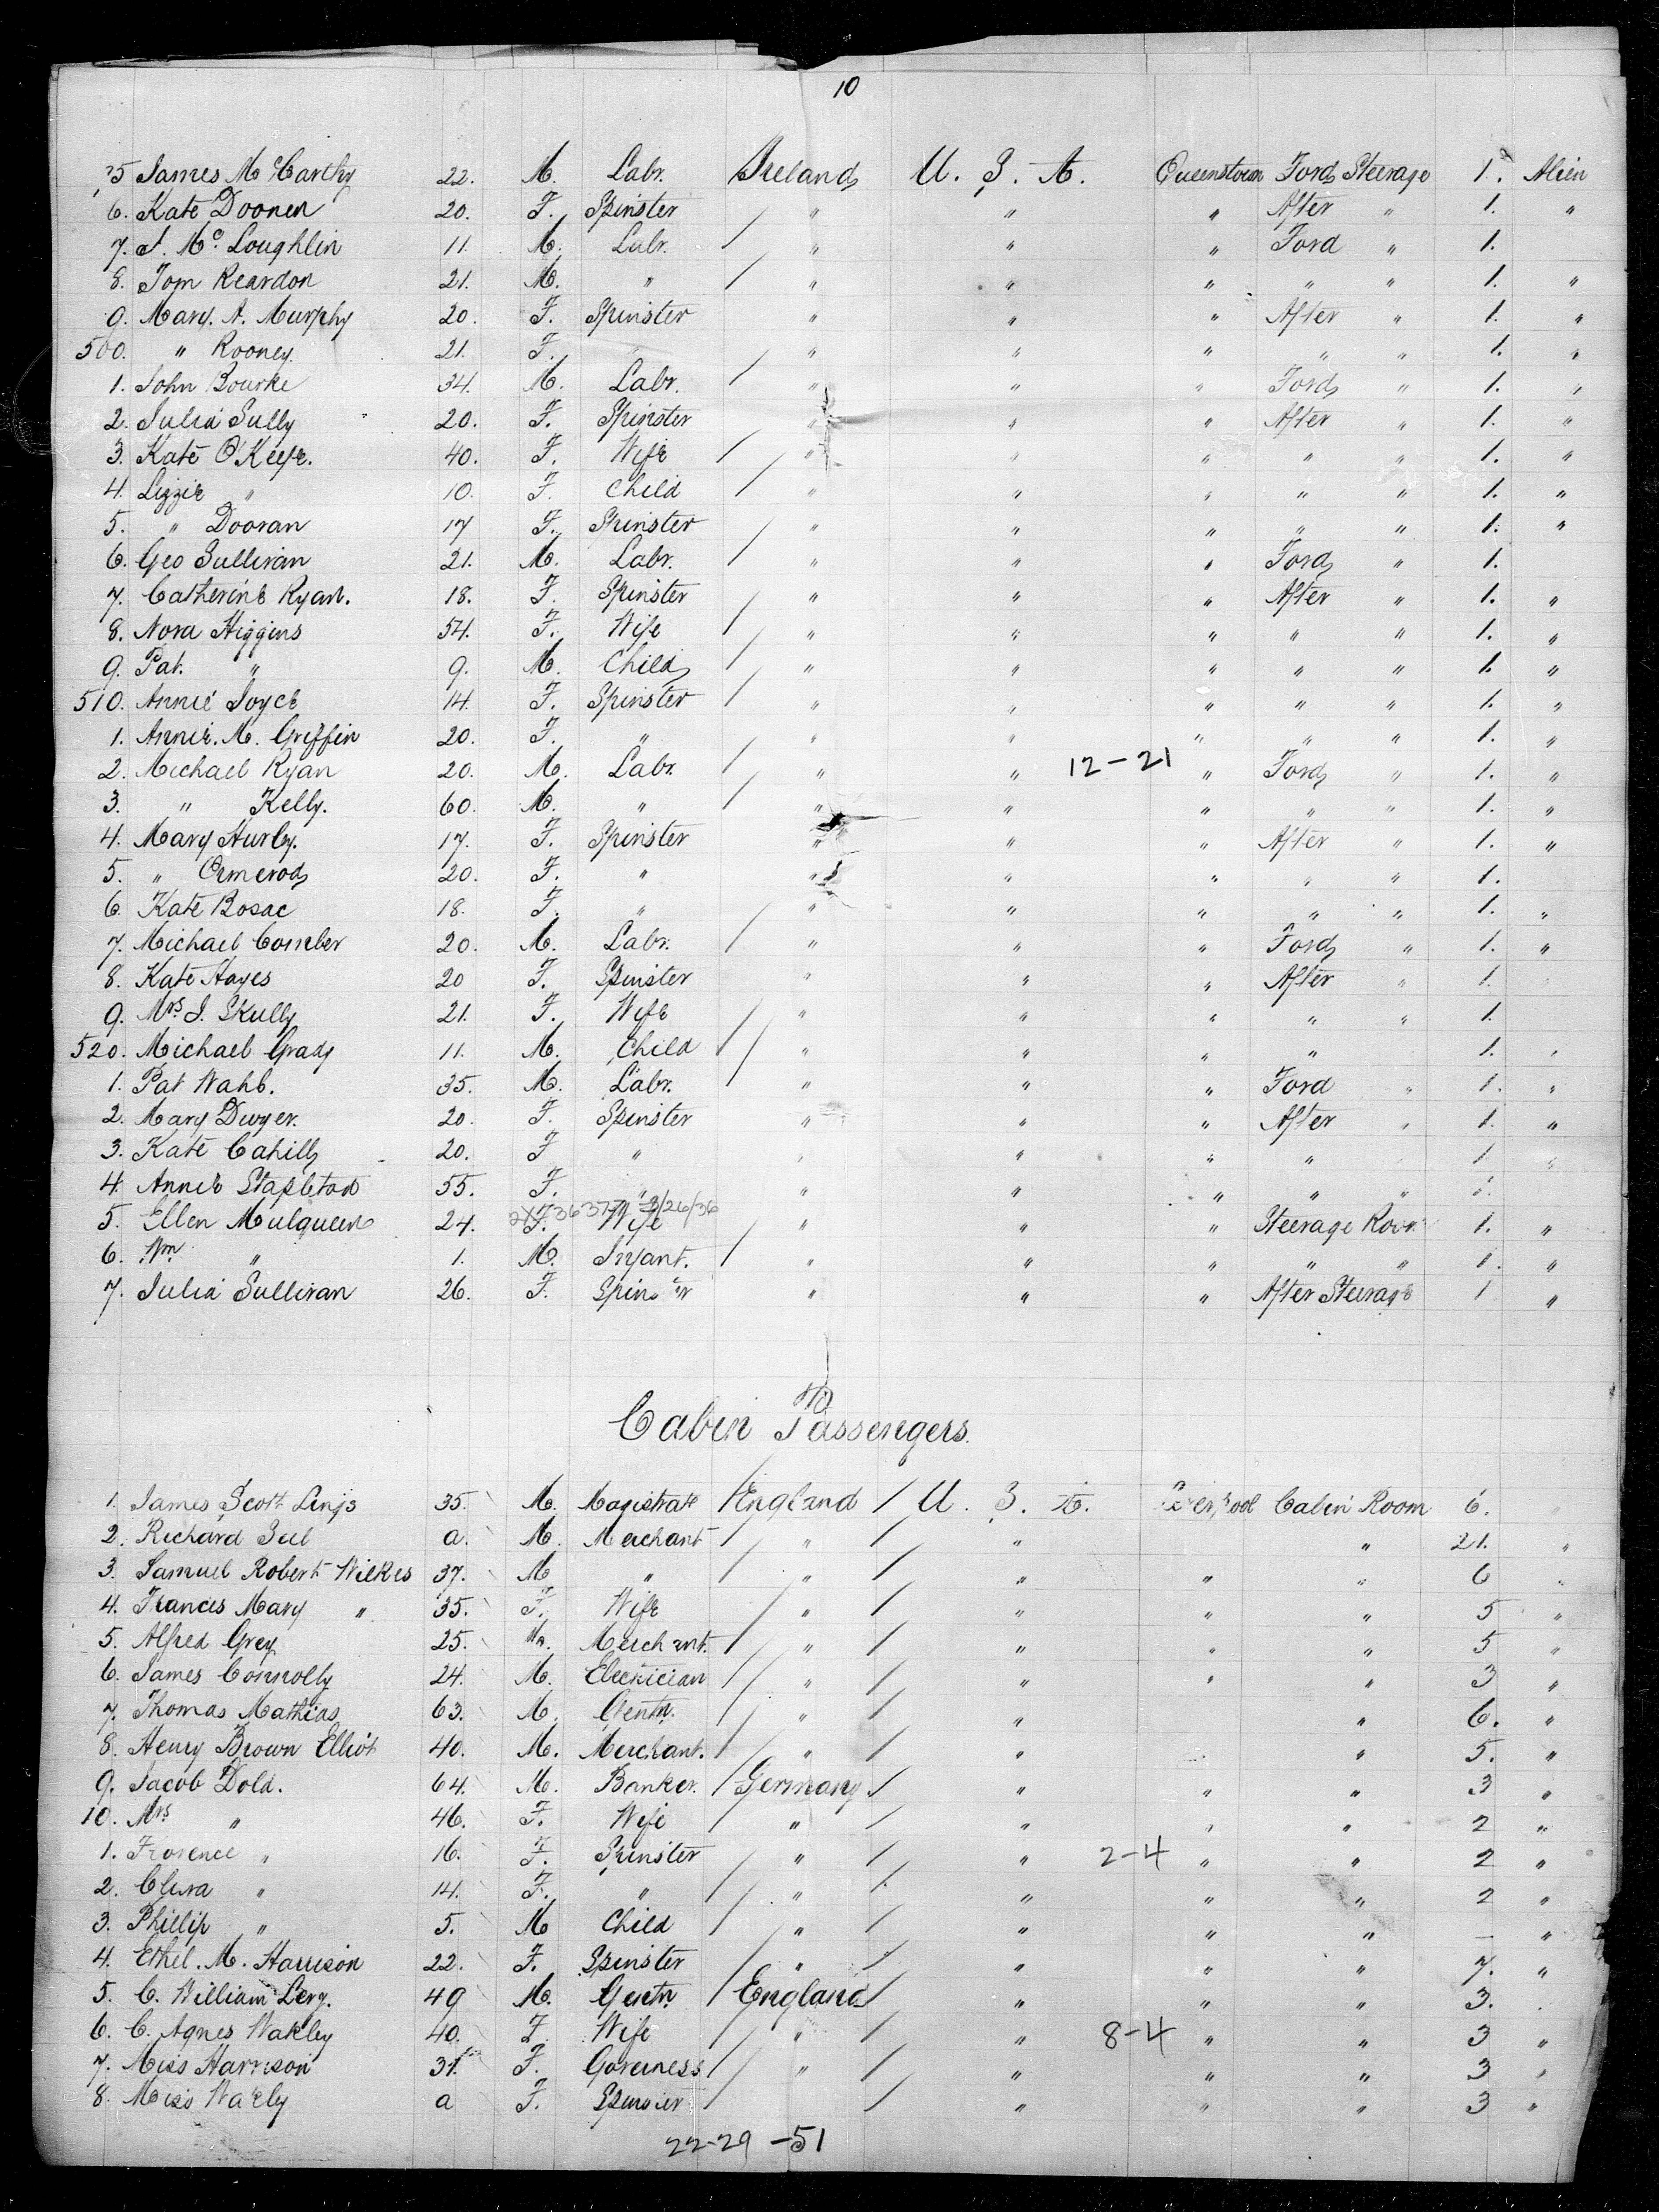 10
James McCarthy 22. M. Labr. Ireland U. S. A. Queenstown Ford Steerage 1. Alien
6. Kate Doonen 20. F. Spinster " " " After " 1. "
7. J. Mc Loughlin 11. M. Labr. / " " " Ford " 1.
8. Tom Reardon 21. M. " / " " " " " 1. "
9. Mary. A. Murphy 20. F. Spinster " " " After " 1. "
500. " Rooney. 21. F. / " " " " " 1. "
1. John Bourke 34. M. Labr. / " " " Ford " 1. "
2. Julia Sully 20. F. Spinster " " " After " 1. "
3. Kate O'Keefe. 40. F. Wife / " " " " " 1. "
4. Lizzie " 10. F. Child / " " " " " 1. "
5. " Dooran 17 F. Spinster / " " " " " 1. "
6. Geo Sullivan 21. M. Labr. / " " " Ford " 1.
7. Catherine Ryan. 18. F. Spinster " " " After " 1. "
8. Nora Higgins 54. F. Wife / " " " " " 1. "
9. Pat. " 9. M. Child / " " " " " 1. "
510. Annie Joyce 14. F. Spinster / " " " " " 1. "
1. Annie. M. Griffin 20. F. " " " " " " 1. "
2. Michael Ryan 20. M. Labr. / " " 12-21 " Ford " 1. "
3. " Kelly. 60. M. " / " " " " " 1. "
4. Mary Hurley. 17. F. Spinster " " " After " 1. "
5. " Ormerod 20. F. " " " " " " 1.
6. Kate Bosac 18. F. " / " " " " " 1. "
7. Michael Comber 20. M. Labr. / " " " Ford " 1. "
8. Kate Hayes 20 F. Spinster " " " After " 1.
9. Mrs J. Skully 21. F. Wife / " " " " " 1.
520. Michael Grady 11. M. Child / / " " " " 1. "
1. Pat 35. M. Labr. / " " " Ford " 1. "
2. Mary Dwyer. 20. F. Spinster " " " After " 1. "
3. Kate Cahill 20. F " " " " " 1 "
4. Annie Stapleton 55. F. " " " " " "
5. Ellen Mulqueen 24. F. Wife " " " Steerage Room 1. "
6. Wm " 1. M. Infant. / " " " " " 1. "
7. Julia Sullivan 26. F. " " " After Steerage 1 "
Cabin Passengers.
1. James Scott 35. M. Magistrate / England / U. S. A. Liverpool Cabin Room 6.
2. Richard a. M. Merchant / " / " " 21. "
3. Samuel Robert Wilkes 37. M " / " / " " " 6 "
4. Frances Mary " 35. F. Wife / " / " " " 5 "
5. Alfred Grey 25. M. Merchant. / " / " " " 5 "
6. James Connolly 24. M. Electrician / " / " " " 3 "
7. Thomas Mathias 63. M. Gentn. / " / " " 6. "
8. Henry Brown Elliot 40. M. Merchant. / " / " " 5. "
9. Jacob Dold. 64. M. Banker. / Germany / " " " 3 "
10. Mrs " 46. F. Wife / " / " " " 2 "
1. Florence " 16. F. Spinster / " / " 2-4 " " 2 "
2. Clara " 14. F. " / " / " " " 2 "
3. Phillip " 5. M Child / " / " " " - "
4. Ethel. M. Harrison 22. F. Spinster / " / " " " 7. "
5. C. William 49 M. Gentn / England / " " " 3.
6. C. Agnes Wakley 40. F. Wife / " / " 8-4 " " 3 "
7. Miss Harrison 31. F. Governess / " / " " " 3 "
8. Miss a F. Spinster / / " " " 3 "
22-29 -51